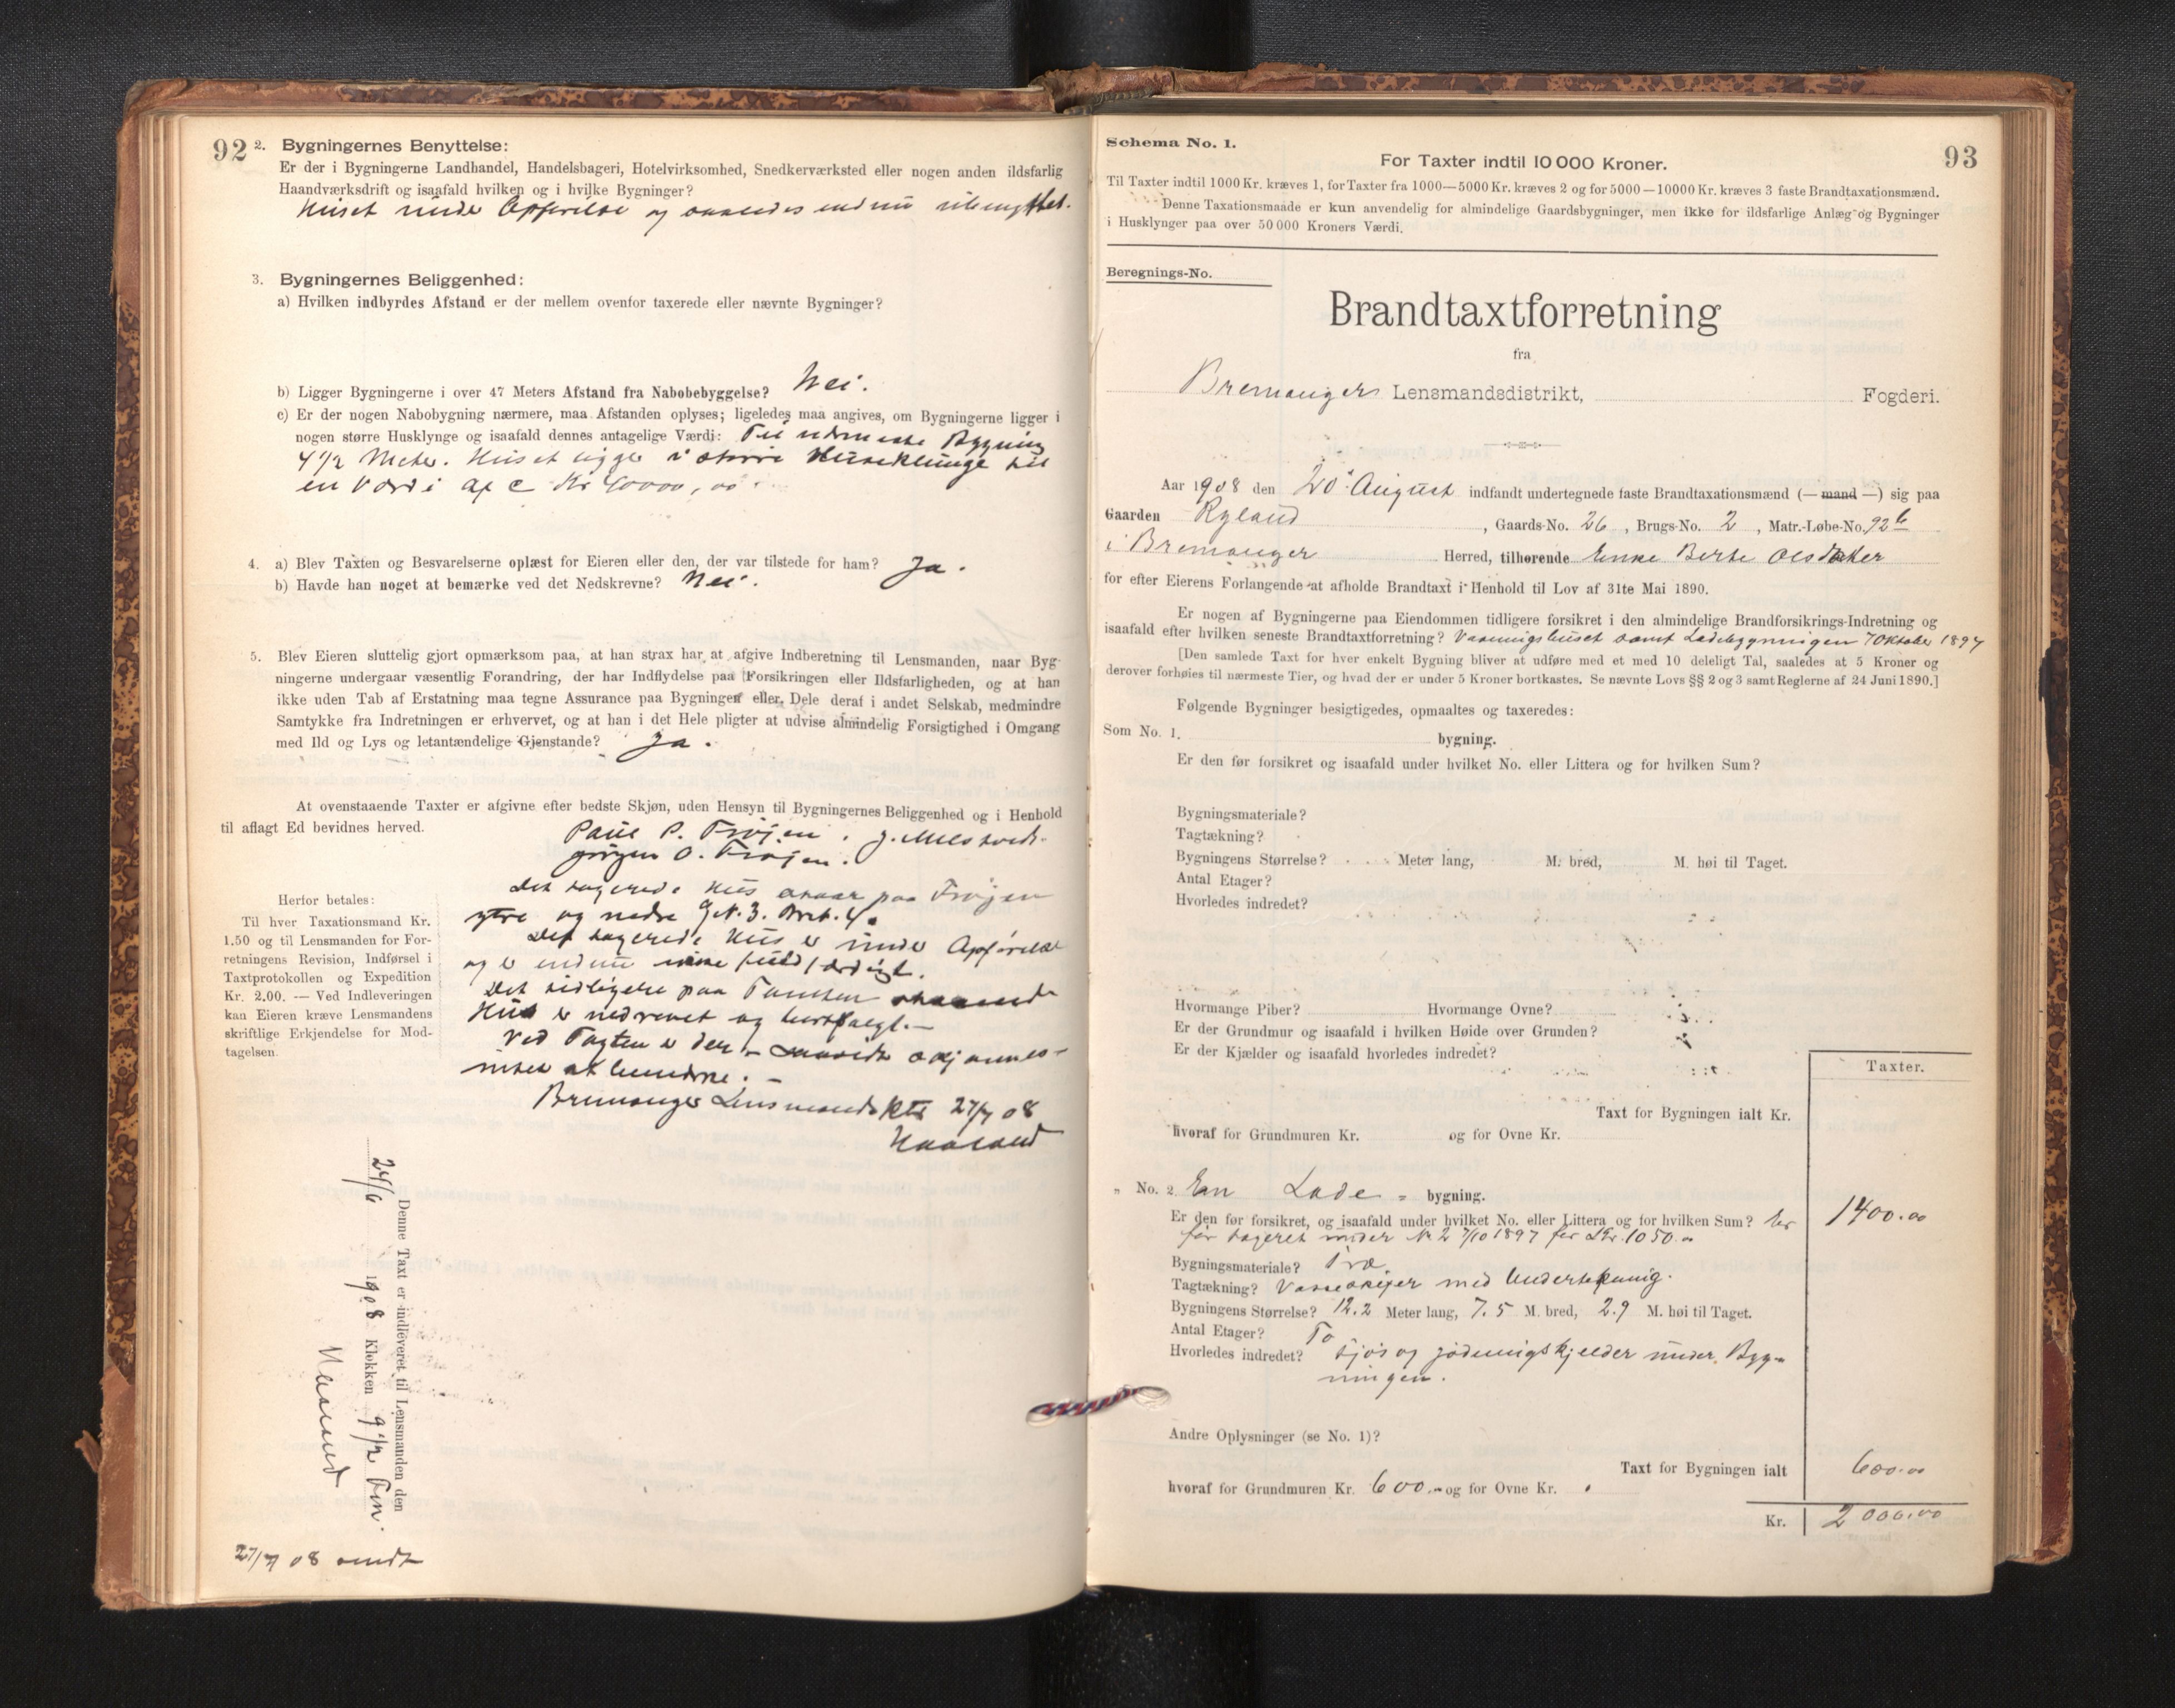 92
2. Bygningernes Benyttelse:
Er der i Bygningerne Landhandel, Handelsbageri, Hotelvirksomhed, Snedkerværksted eller nogen anden ildsfarlig
Haandværksdrift og isaafald hvilken og i hvilke Bygninger?
Huset under Opførelse og saaledes endnu ubenyttet.
3. Bygningernes Beliggenhed:
a) Hvilken indbyrdes Afstand er der mellem ovenfor taxerede eller nævnte Bygninger?
b) Ligger Bygningerne i over 47 Meters Afstand fra Nabobebyggelse? Nei.
c) Er der nogen Nabobygning nærmere, maa Afstanden oplyses; ligeledes maa angives, om Bygningerne ligger i
nogen større Husklynge og isaafald dennes antagelige Værdi: Til nærmeste Bygning
4 1/2 Meter. Huset ligger i større Husklynge til
en Værdi af c Kr 40000,00.
4. a) Blev Taxten og Besvarelserne oplæst for Eieren eller den, der var tilstede for ham? Ja.
b) Havde han noget at bemærke ved det Nedskrevne? Nei.
5. Blev Eieren sluttelig gjort opmærksom paa, at han strax har at afgive Indberetning til Lensmanden, naar Byg-
ningerne undergaar væsentlig Forandring, der har Indflydelse paa Forsikringen eller Ildsfarligheden, og at han
ikke uden Tab af Erstatning maa tegne Assurance paa Bygningen eller Dele deraf i andet Selskab, medmindre
Samtykke fra Indretningen er erhvervet, og at han i det Hele pligter at udvise almindelig Forsigtighed i Omgang
med Ild og Lys og letantændelige Gjenstande? Ja.
At ovenstaaende Taxter er afgivne efter bedste Skjøn, uden Hensyn til Bygningernes Beliggenhed og i Henhold
til aflagt Ed bevidnes herved.
Paul P. Frøjen. J.
Jørgen O. Frøjen.
Herfor betales:
Til hver Taxationsmand Kr.
1.50 og til Lensmanden for For-
retningens Revision, Indførsel i
Taxtprotokollen og Expedition
Kr. 2.00. — Ved Indleveringen
kan Eieren kræve Lensmandens
skriftlige Erkjendelse for Mod-
tagelsen.
Det taxerede Hus staar paa Frøjen
ytre og nedre G.N. 3. Br.N. 4.
Det taxerede Hus er under Opførelse
og er endnu ikke fuldfærdigt.
Det tidligere paa Tomten staaende
Hus er nedrevet og bortsolgt.—
Ved Taxten er der — saavidt skjønnes —
intet at bemærke. —
Bremanger Lensmandsktr 27/7 08
Haaland
Denne Taxt er indleveret til Lensmanden den
24/6 1908 Klokken 9 1/2 Fm.
Haaland
27/7 08 sendt
93
Schema No. 1.
For Taxter indtil 10 000 Kroner.
Til Taxter indtil 1000 Kr. kræves 1, for Taxter fra 1000—5000 Kr. kræves 2 og for 5000—10000 Kr. kræves 3 faste Brandtaxationsmænd.
Denne Taxationsmaade er kun anvendelig for almindelige Gaardsbygninger, men ikke for ildsfarlige Anlæg og Bygninger
i Husklynger paa over 50 000 Kroners Værdi.
Beregnings-No.
Brandtaxtforretning
fra
Bremangers Lensmandsdistrikt, Fogderi.
Aar 1908 den 20 August indfandt undertegnede faste Brandtaxationsmænd (— mand —) sig paa
Gaarden Ryland, Gaards-No. 26, Brugs-No. 2, Matr.-Løbe-No. 92b
i Bremanger Herred, tilhørende Enke Berte Olsdatter
for efter Eierens Forlangende at afholde Brandtaxt i Henhold til Lov af 31te Mai 1890.
Er nogen af Bygningerne paa Eiendommen tidligere forsikret i den almindelige Brandforsikrings-Indretning og
isaafald efter hvilken seneste Brandtaxtforretning? Vaaningshuset samt Ladebygningen 7 Oktober 1897
[Den samlede Taxt for hver enkelt Bygning bliver at udføre med et med 10 deleligt Tal, saaledes at 5 Kroner og
derover forhøies til nærmeste Tier, og hvad der er under 5 Kroner bortkastes. Se nævnte Lovs §§ 2 og 3 samt Reglerne af 24 Juni 1890.]
Følgende Bygninger besigtigedes, opmaaltes og taxeredes:
Som No. 1. bygning.
Er den før forsikret og isaafald under hvilket No. eller Littera og for hvilken Sum?
Bygningsmateriale?
Tagtækning?
Bygningens Størrelse? Meter lang, M. bred, M. høi til Taget.
Antal Etager?
Hvorledes indredet?
Hvormange Piber? Hvormange Ovne?
Er der Grundmur og isaafald i hvilken Høide over Grunden?
Er der Kjælder og isaafald hvorledes indredet?
Taxter.
Taxt for Bygningen ialt Kr.
hvoraf for Grundmuren Kr. og for Ovne Kr.
" No. 2 En Lade - bygning.
Er den før forsikret, og isaafald under hvilket No. eller Littera og for hvilken Sum? Er 1400.00
før taxeret under No 2 7/10 1897 for Kr. 1050.00
Bygningsmateriale? Træ
Tagtækning? med Undertækning.
Bygningens Størrelse? 12.2 Meter lang, 7.5 M. bred, 2.9 M. høi til Taget.
Antal Etager? To
Hvorledes indredet? Fjøs og gjødningskjelder under Byg-
ningen.
Andre Oplysninger (se No. 1)?
Taxt for Bygningen ialt 600.00
hvoraf for Grundmuren Kr. 600.- og for Ovne Kr.
Kr. 2000.00